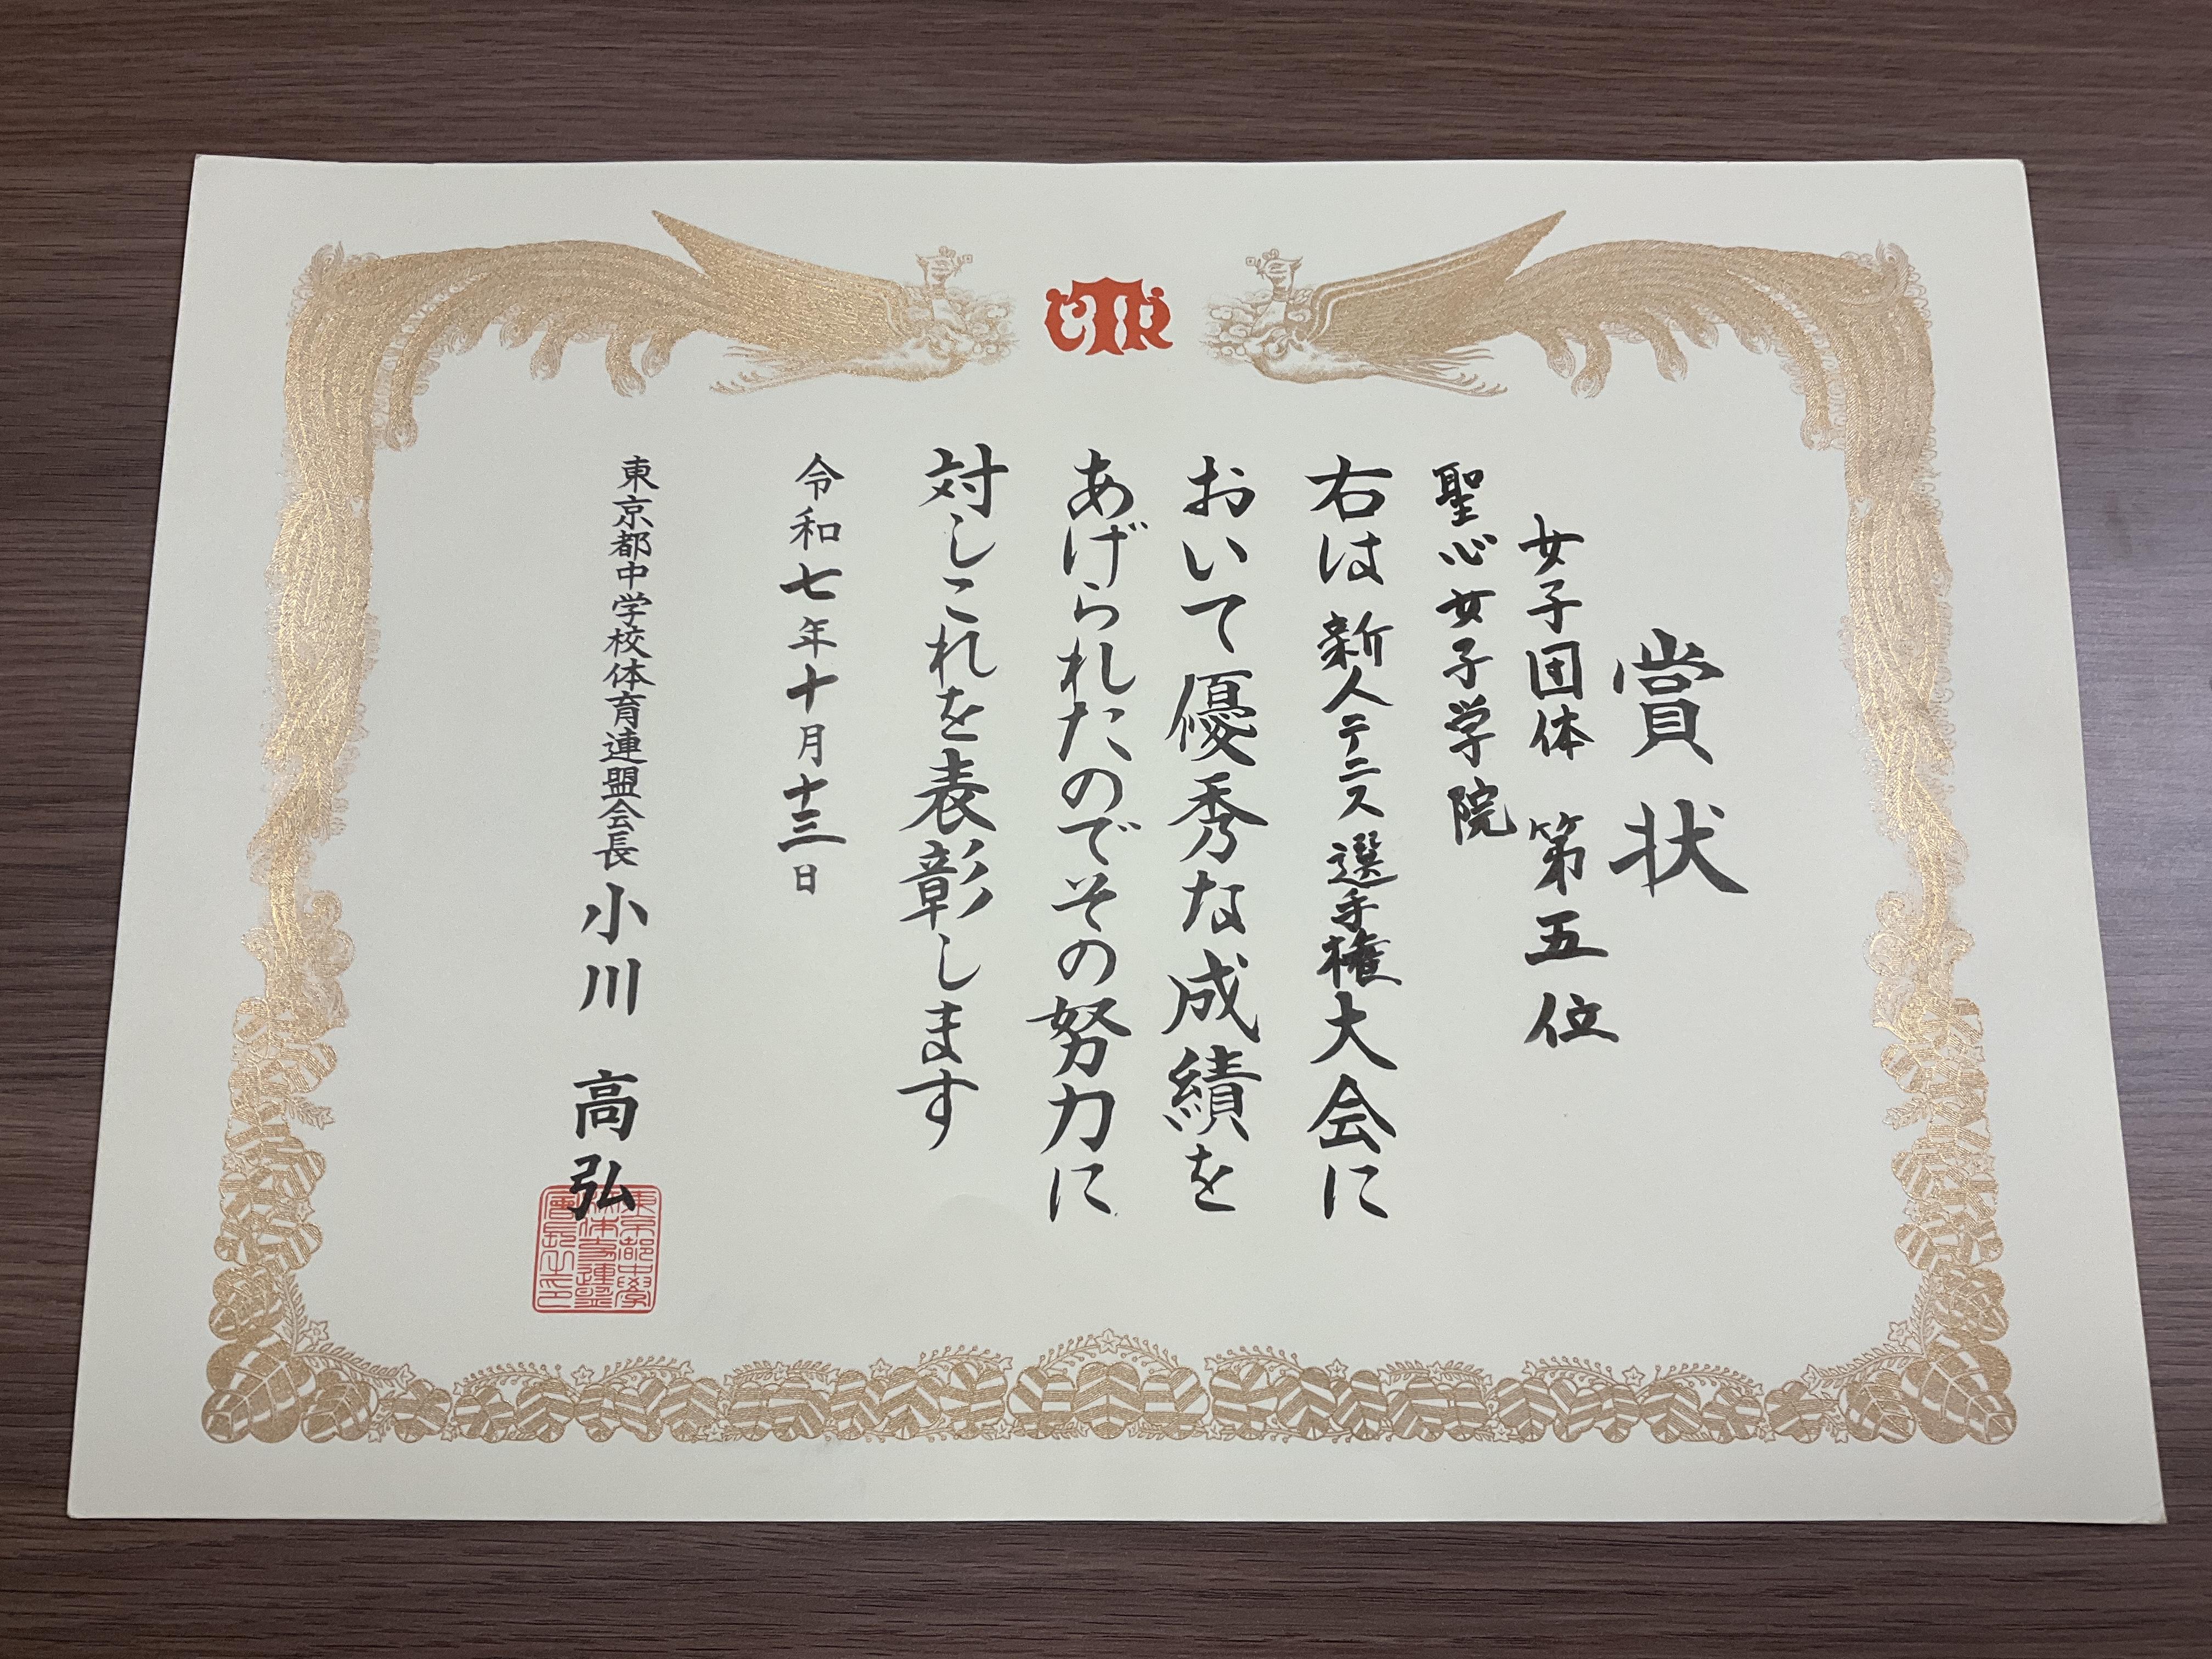 賞状
女子団体 第五位
聖心女子学院
右は 新人テニス選手権大会に
おいて優秀な成績を
あげられたのでその努力に
対しこれを表彰します
令和七年十月十三日
東京都中学校体育連盟会長 小川 高弘